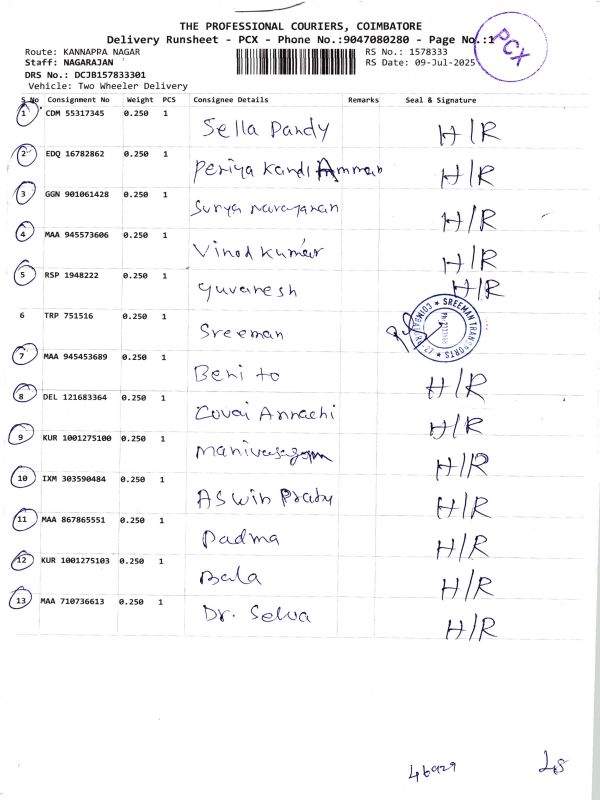 THE PROFESSIONAL COURIERS, COIMBATORE
Delivery Runsheet - PCX - Phone No.:9047080280 - Page No.:1
PCX
Route: KANNAPPA NAGAR
RS No.: 1578333
Staff: NAGARAJAN
RS Date: 09-Jul-2025
DRS No.: DCJB157833301
Vehicle: Two Wheeler Delivery
S.No Consignment No Weight PCS Consignee Details Remarks Seal & Signature
1 CDM 55317345 0.250 1 Sella Pandy H/R
2 EDQ 16782862 0.250 1 Periya Kandi Amman H/R
3 GGN 901061428 0.250 1 Surya Narayanan H/R
4 MAA 945573606 0.250 1 Vinod Kumar H/R
5 RSP 1948222 0.250 1 Yuvanesh H/R
6 TRP 751516 0.250 1 Sreeman
SREEMAN TRANSPORTS
7 MAA 945453689 0.250 1 Beni to H/R
8 DEL 121683364 0.250 1 Covai Annachi H/R
9 KUR 1001275100 0.250 1 Manivasagam H/R
10 IXM 303590484 0.250 1 ASwin Prabu H/R
11 MAA 867865551 0.250 1 Padma H/R
12 KUR 1001275103 0.250 1 Bala H/R
13 MAA 710736613 0.250 1 Dr. Selva H/R
46929